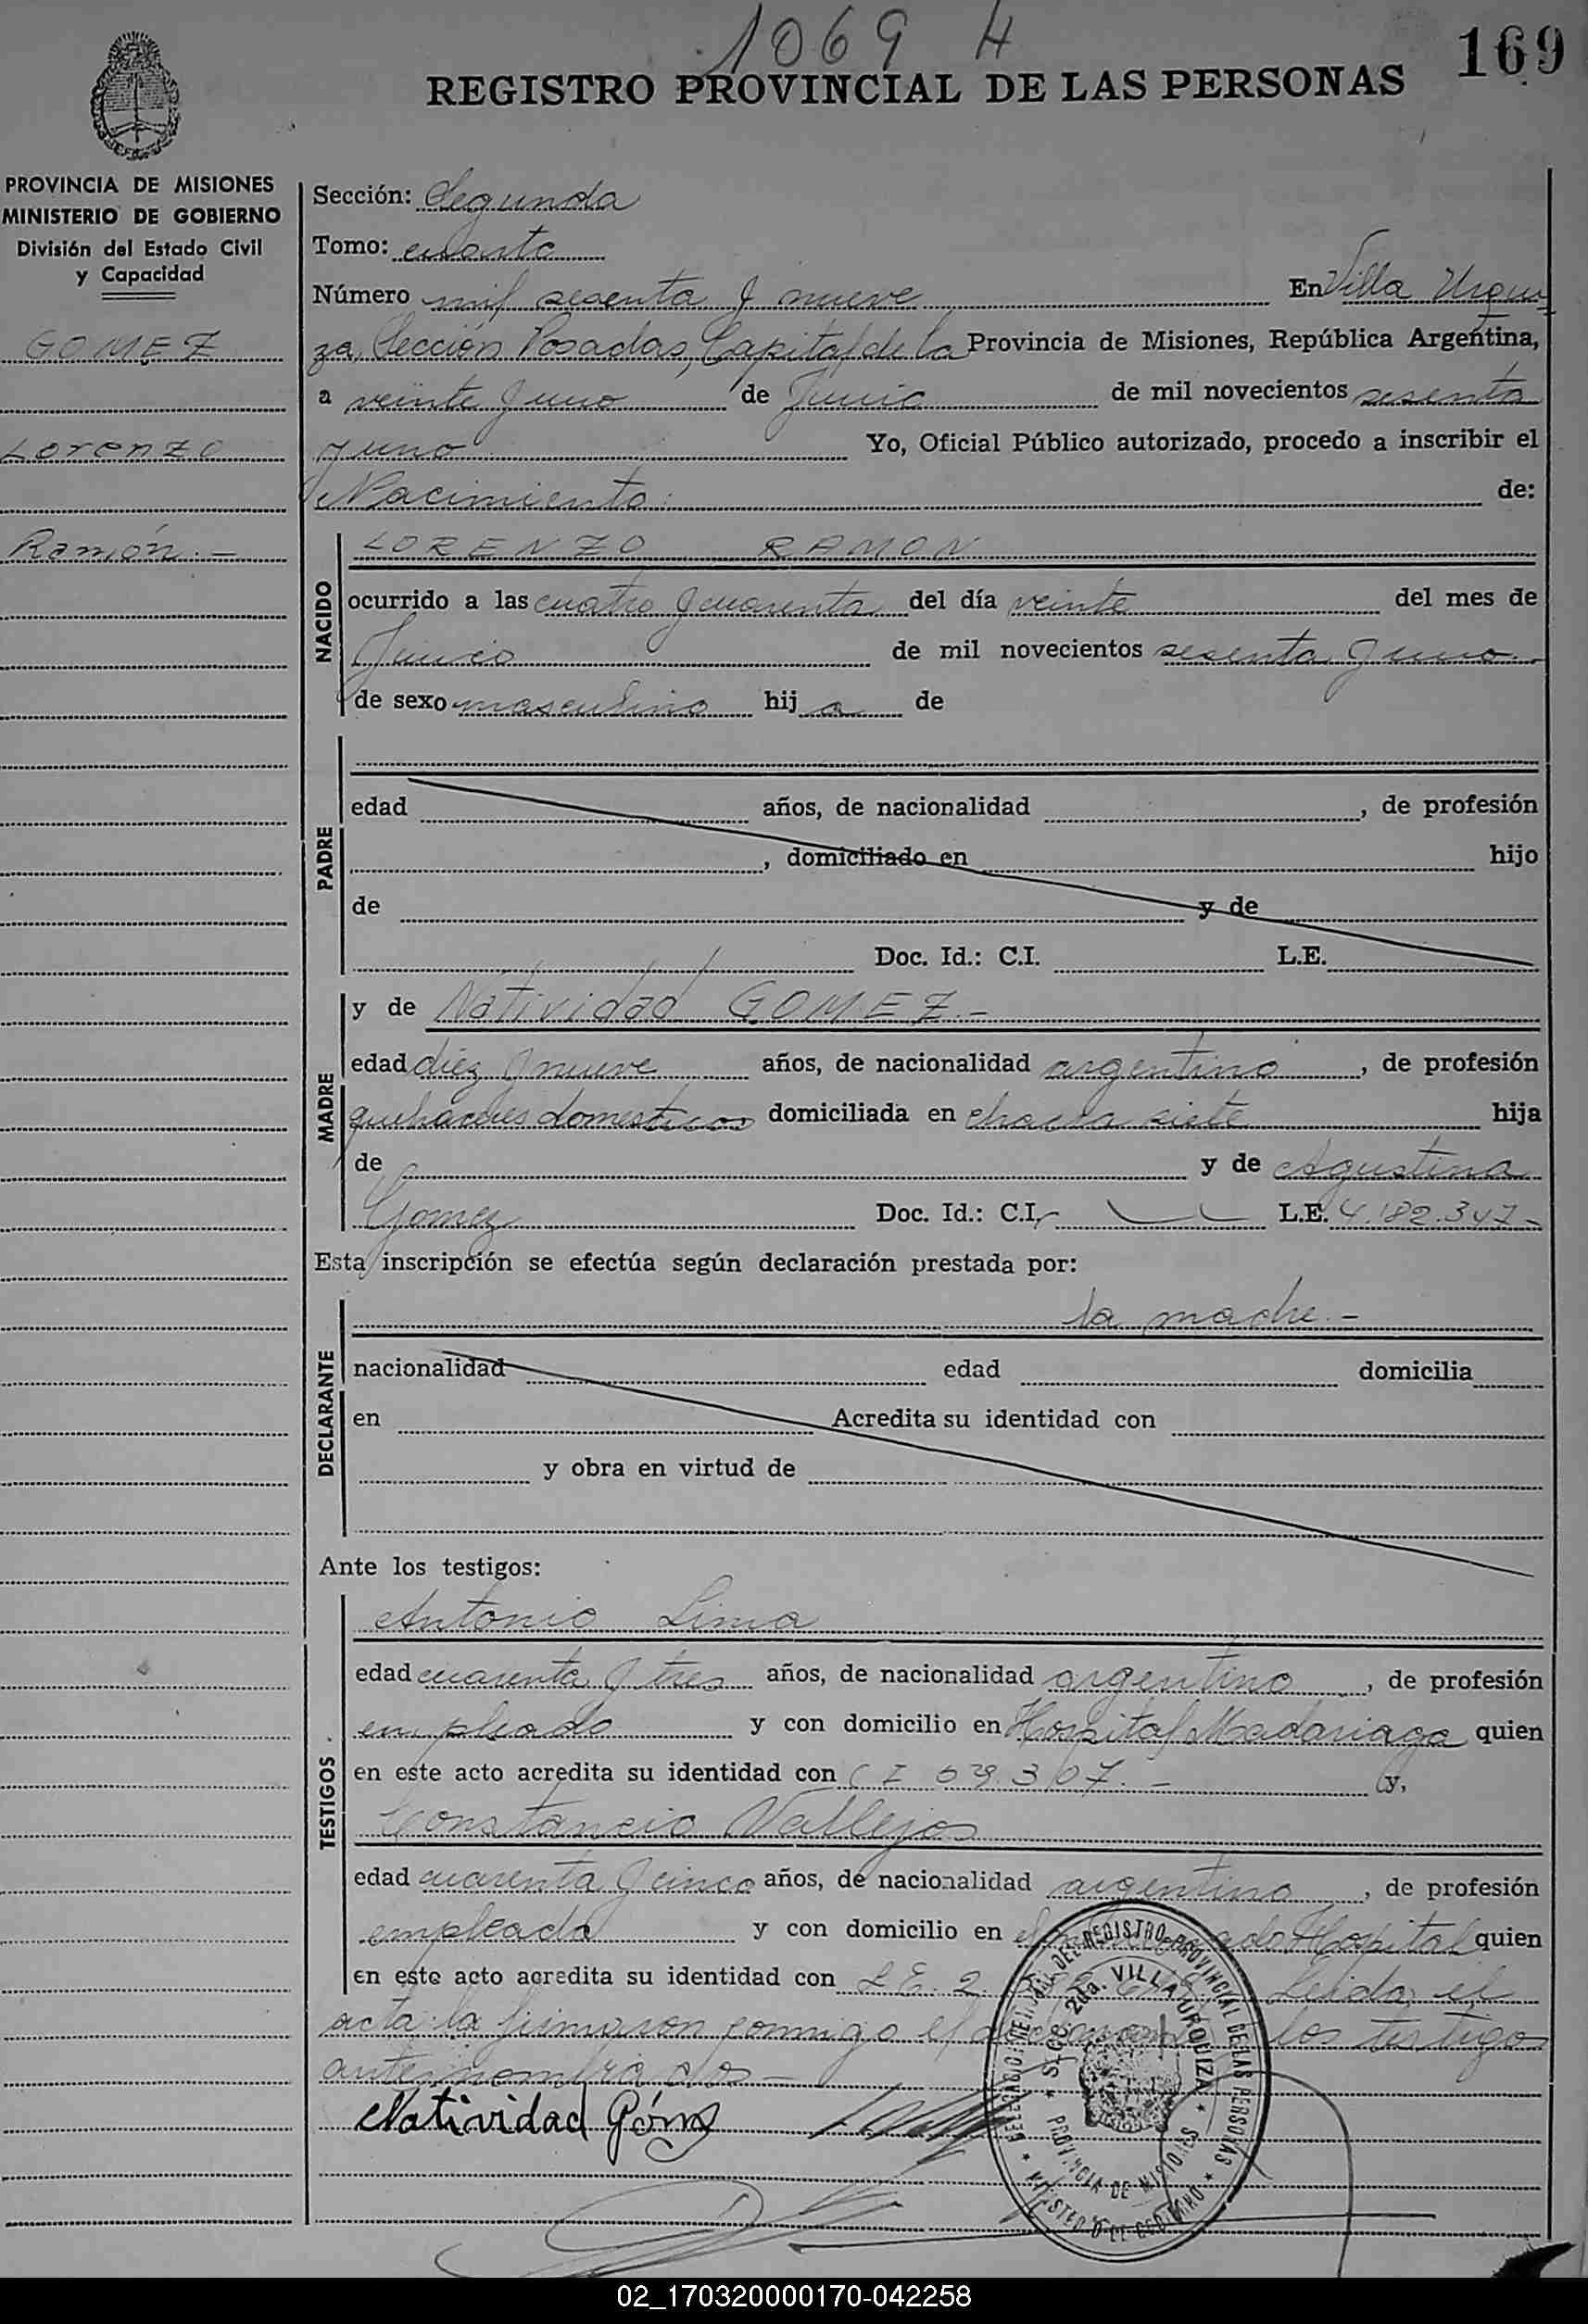 1069 H
169
REGISTRO PROVINCIAL DE LAS PERSONAS
PROVINCIA DE MISIONES
MINISTERIO DE GOBIERNO
División del Estado Civil
y Capacidad
GOMEZ
Lorenzo
Ramón.-
Sección: Segunda
Tomo: cuarto
Número mil sesenta y nueve En Villa Urqui
za, Sección Posadas, Capital de la Provincia de Misiones, República Argentina,
a veinte y uno de Junio de mil novecientos sesenta
y uno Yo, Oficial Público autorizado, procedo a inscribir el
Nacimiento de:
NACIDO
LORENZO RAMON
ocurrido a las cuatro y cuarenta del día veinte del mes de
Junio de mil novecientos sesenta y uno
de sexo masculino hij o de
PADRE
edad años, de nacionalidad , de profesión
, domiciliado en hijo
de y de
Doc. Id.: C.I. L.E.
MADRE
y de Natividad GOMEZ.-
edad diez y nueve años, de nacionalidad argentina , de profesión
quehaceres domesticos domiciliada en chacra siete hija
de y de Agustina
Gomez Doc. Id.: C.I. L.E. 4.182.347-
Esta inscripción se efectúa según declaración prestada por:
DECLARANTE
la madre.-
nacionalidad edad domicilia
en Acredita su identidad con
y obra en virtud de
Ante los testigos:
TESTIGOS
Antonio Lima
edad cuarenta y tres años, de nacionalidad argentino , de profesión
empleado y con domicilio en Hospital Madariaga quien
en este acto acredita su identidad con C I 307.- y,
Constancio Vallejos
edad cuarenta y cinco años, de nacionalidad argentino , de profesión
empleado y con domicilio en Hospital quien
en este acto acredita su identidad con L.E. 2. Leida el
acta la firmaron conmigo los testigos
antenombrados-
Natividad Góm
REGISTRO PROVINCIAL DE LAS PERSONAS
SECC. 2da. VILLA URQUIZA
PROVINCIA DE MISIONES
MINISTERIO DE GOBIERNO
02_170320000170-042258